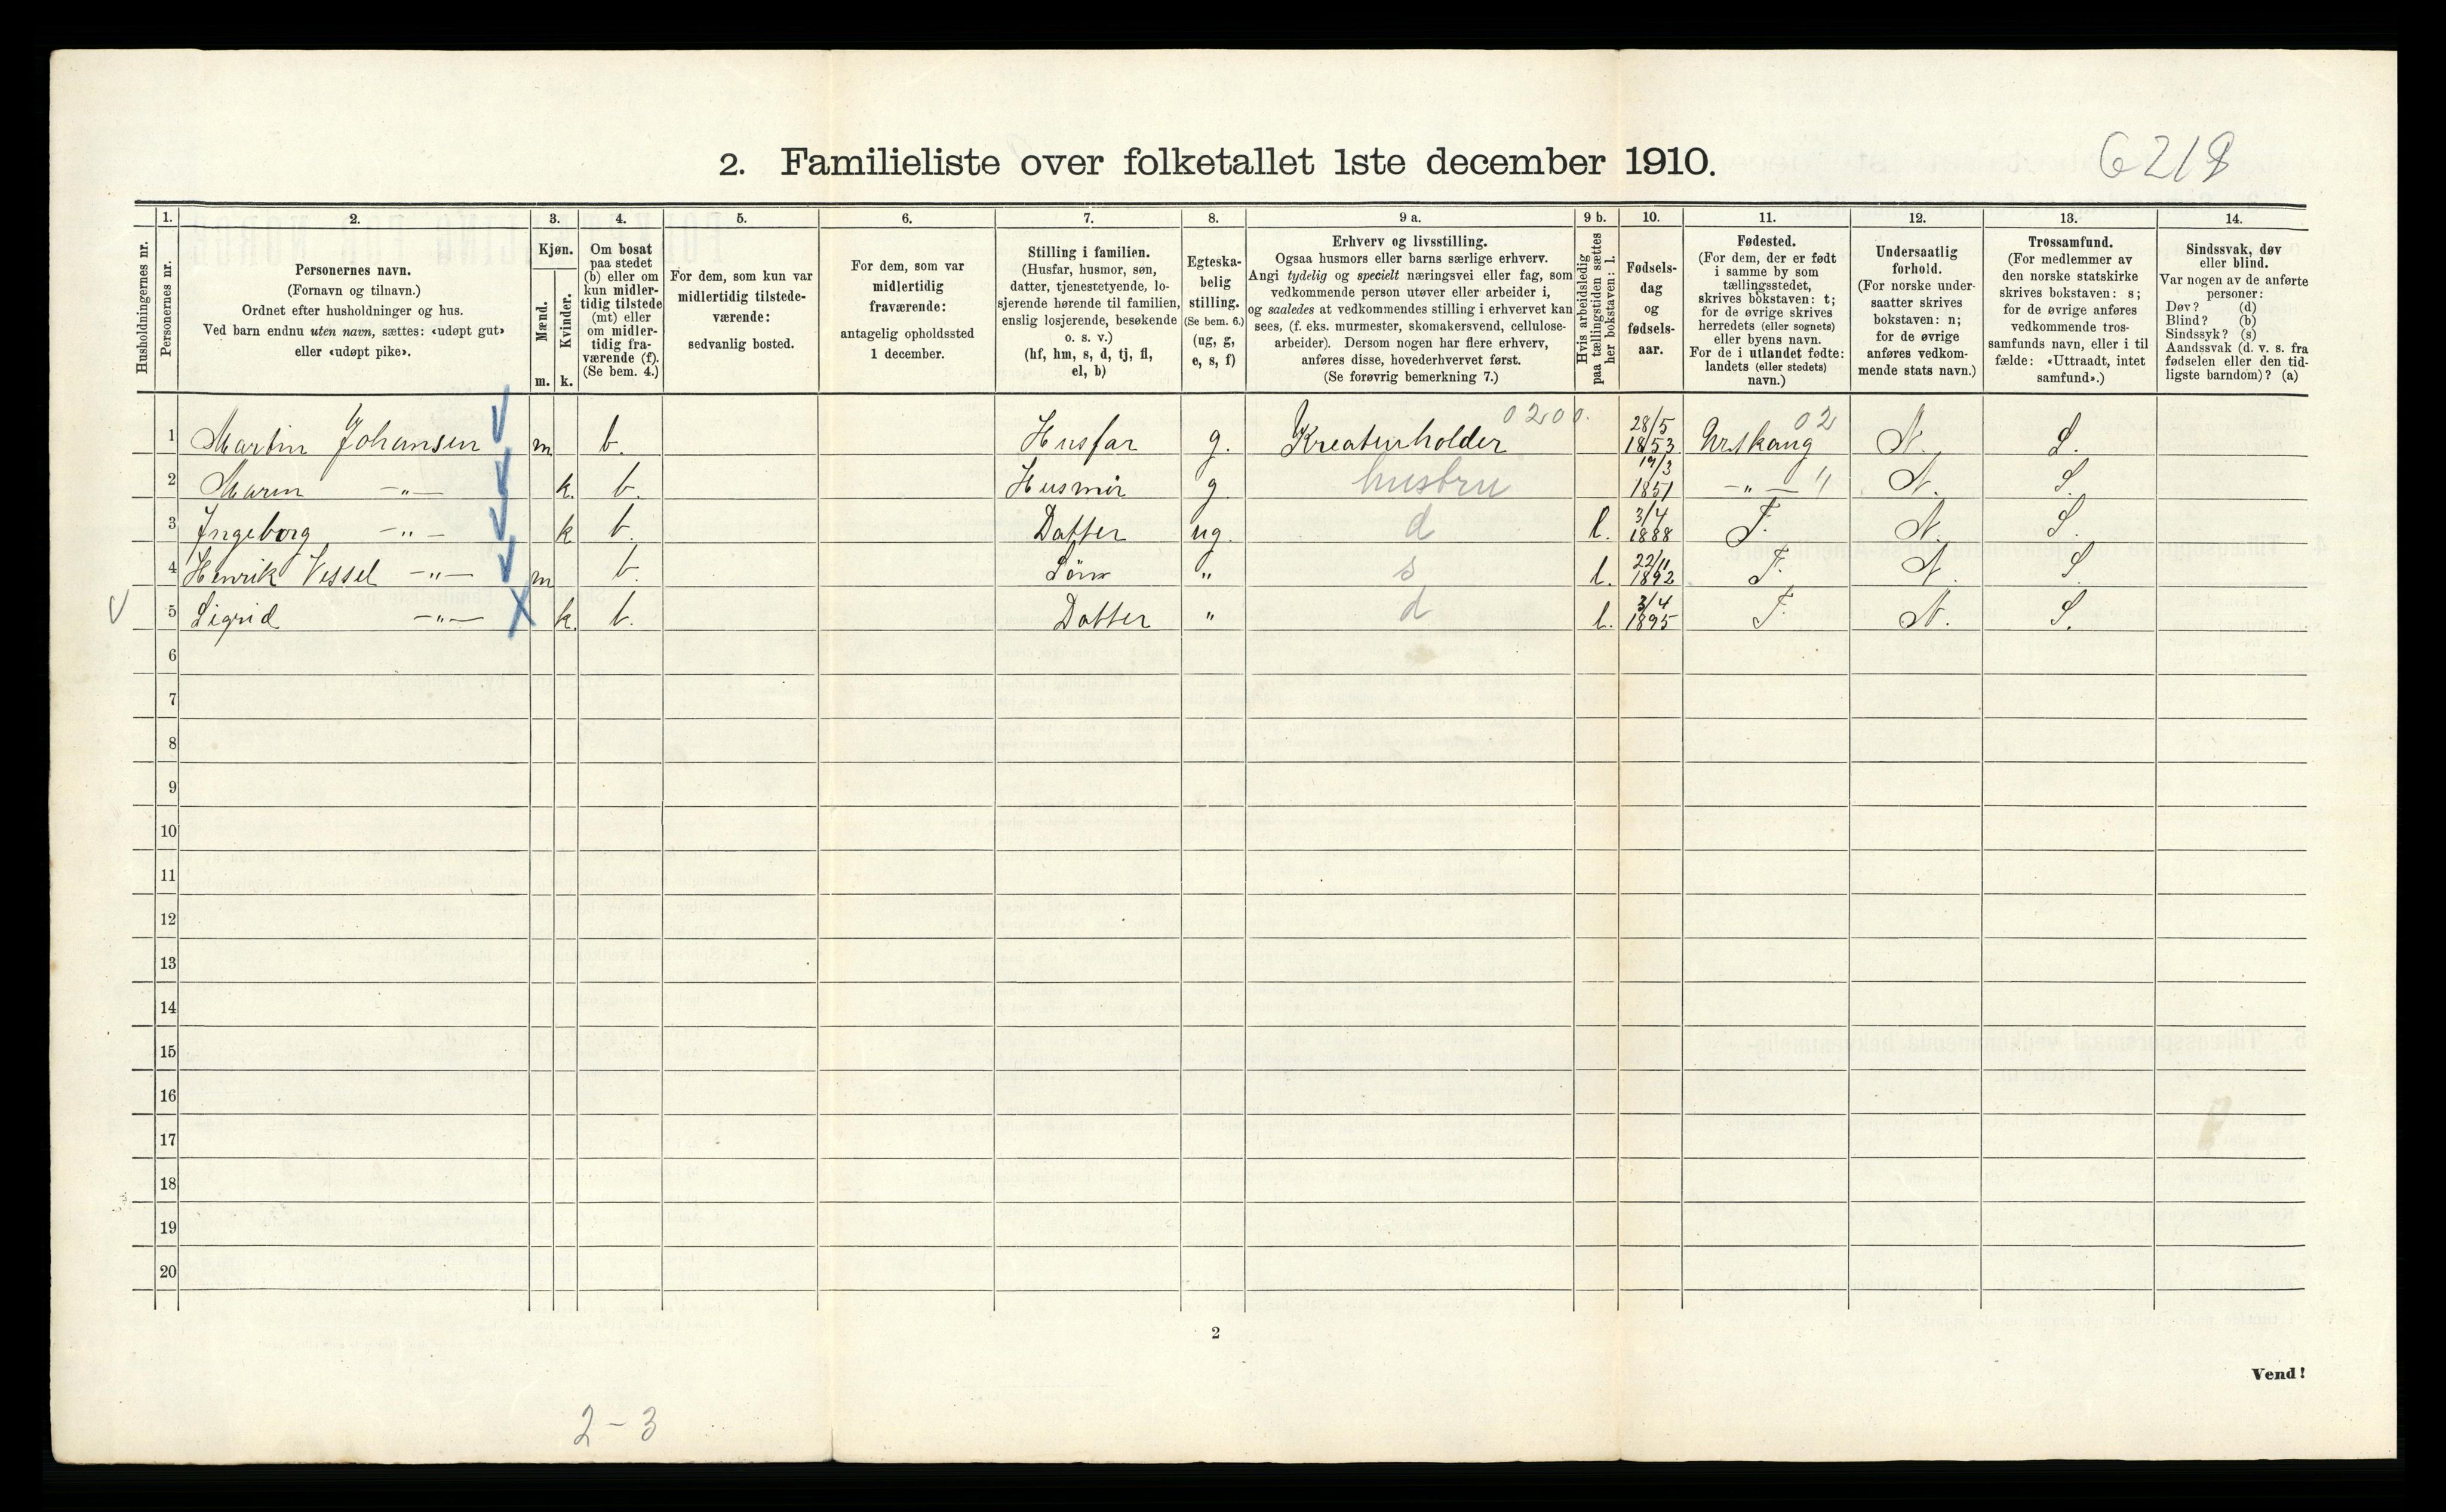 6218
2. Familieliste over folketallet 1ste december 1910.
Husholdningernes nr.
1.
Personernes nr.
2.
Personernes navn.
(Fornavn og tilnavn.)
Ordnet efter husholdninger og hus.
Ved barn endnu uten navn, sættes: «udøpt gut»
eller «udøpt pike».
3.
Kjøn.
Mænd.
Kvinder.
m. k.
4.
Om bosat
paa stedet
(b) eller om
kun midler-
tidig tilstede
(mt) eller
om midler-
tidig fra-
værende (f).
(Se bem. 4.)
5.
For dem, som kun var
midlertidig tilstede-
værende:
sedvanlig bosted.
6.
For dem, som var
midlertidig
fraværende:
antagelig opholdssted
1 december.
7.
Stilling i familien.
(Husfar, husmor, søn,
datter, tjenestetyende, lo-
sjerende hørende til familien,
enslig losjerende, besøkende
o. s. v.)
(hf, hm, s, d, tj, fl,
el, b)
8.
Egteska-
belig
stilling.
(Se bem. 6.)
(ug, g,
e, s, f)
9 a.
Erhverv og livsstilling.
Ogsaa husmors eller barns særlige erhverv.
Angi tydelig og specielt næringsvei eller fag, som
vedkommende person utøver eller arbeider i,
og saaledes at vedkommendes stilling i erhvervet kan
sees, (f. eks. murmester, skomakersvend, cellulose-
arbeider). Dersom nogen har flere erhverv,
anføres disse, hovederhvervet først.
(Se forøvrig bemerkning 7.)
9 b.
Hvis arbeidsledig
paa tællingstiden sættes
her bokstaven: l.
10.
Fødsels-
dag
og
fødsels-
aar.
11.
Fødested.
(For dem, der er født
i samme by som
tællingsstedet,
skrives bokstaven: t;
for de øvrige skrives
herredets (eller sognets)
eller byens navn.
For de i utlandet fødte:
landets (eller stedets)
navn.)
12.
Undersaatlig
forhold.
(For norske under-
saatter skrives
bokstaven: n;
for de øvrige
anføres vedkom-
mende stats navn.)
13.
Trossamfund.
(For medlemmer av
den norske statskirke
skrives bokstaven: s;
for de øvrige anføres
vedkommende tros-
samfunds navn, eller i til
fælde: «Uttraadt, intet
samfund».)
14.
Sindssvak, døv
eller blind.
Var nogen av de anførte
personer:
Døv? (d)
Blind? (b)
Sindssyk? (s)
Aandssvak (d. v. s. fra
fødselen eller den tid-
ligste barndom)? (a)
1 Martin Johansen m b. Husfar g. Kreaturholder 0200. 28/5 1853 Urskaug 02 N. S.
2 Maren -"- k. b. Husmor g. hustru 19/3 1851 -"- " N. S.
3 Ingeborg -"- k b. Datter ug. d l. 3/4 1888 T. N. S.
4 Henrik Vessel -"- m b. Sön " s l. 22/11 1892 T. N. S.
5 Sigrid -"- k. b. Datter " d l. 3/4 1895 T. N. S.
6
7
8
9
10
11
12
13
14
15
16
17
18
19
20
2
Vend!
2-3